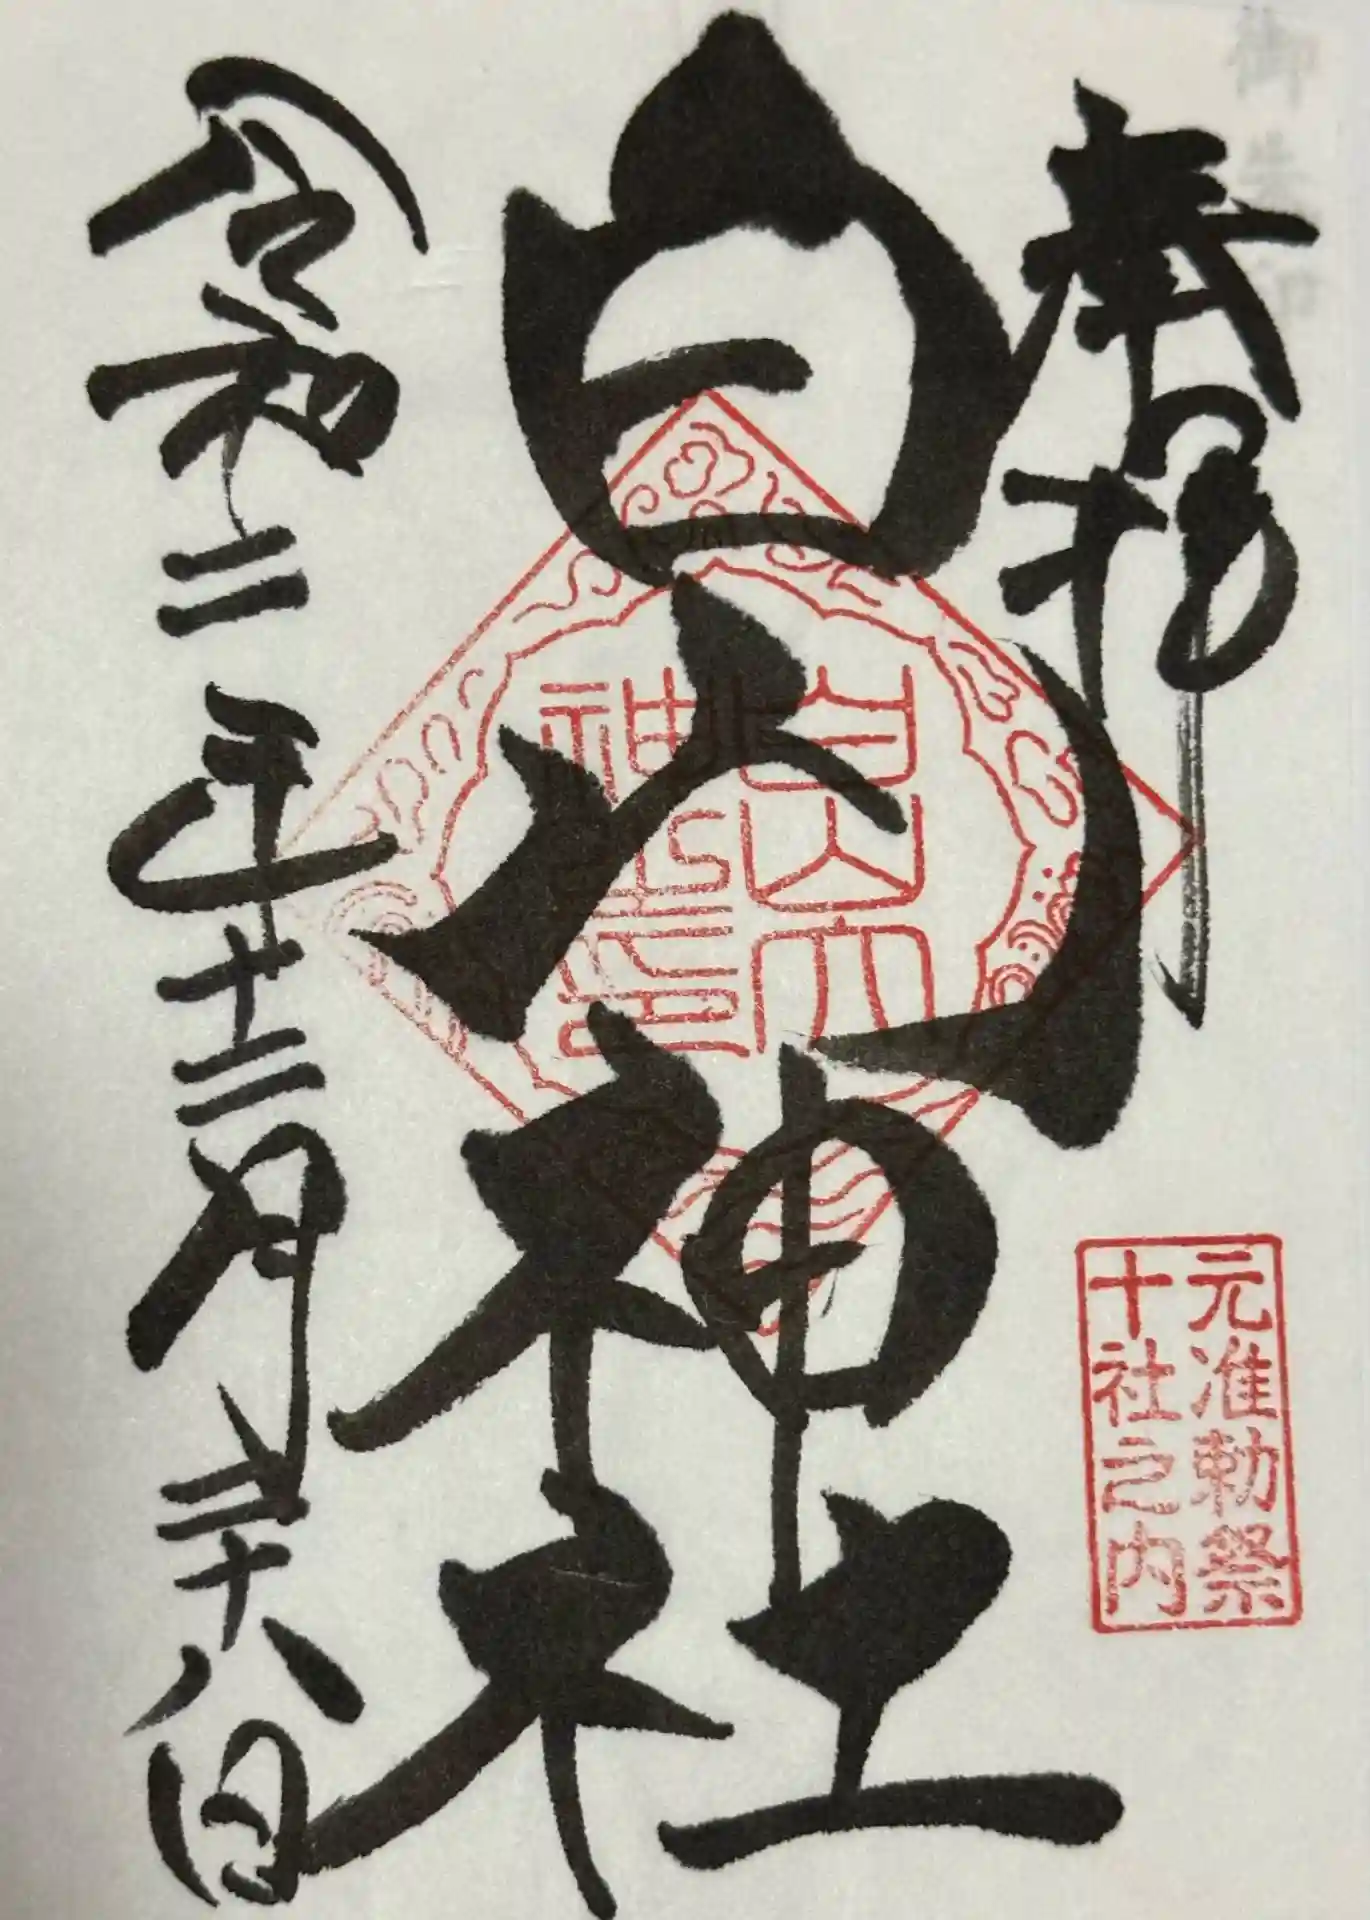 御朱印
奉拝
白山神社
令和二年十二月二十八日
白山大
神璽
元准勅祭
十社之内